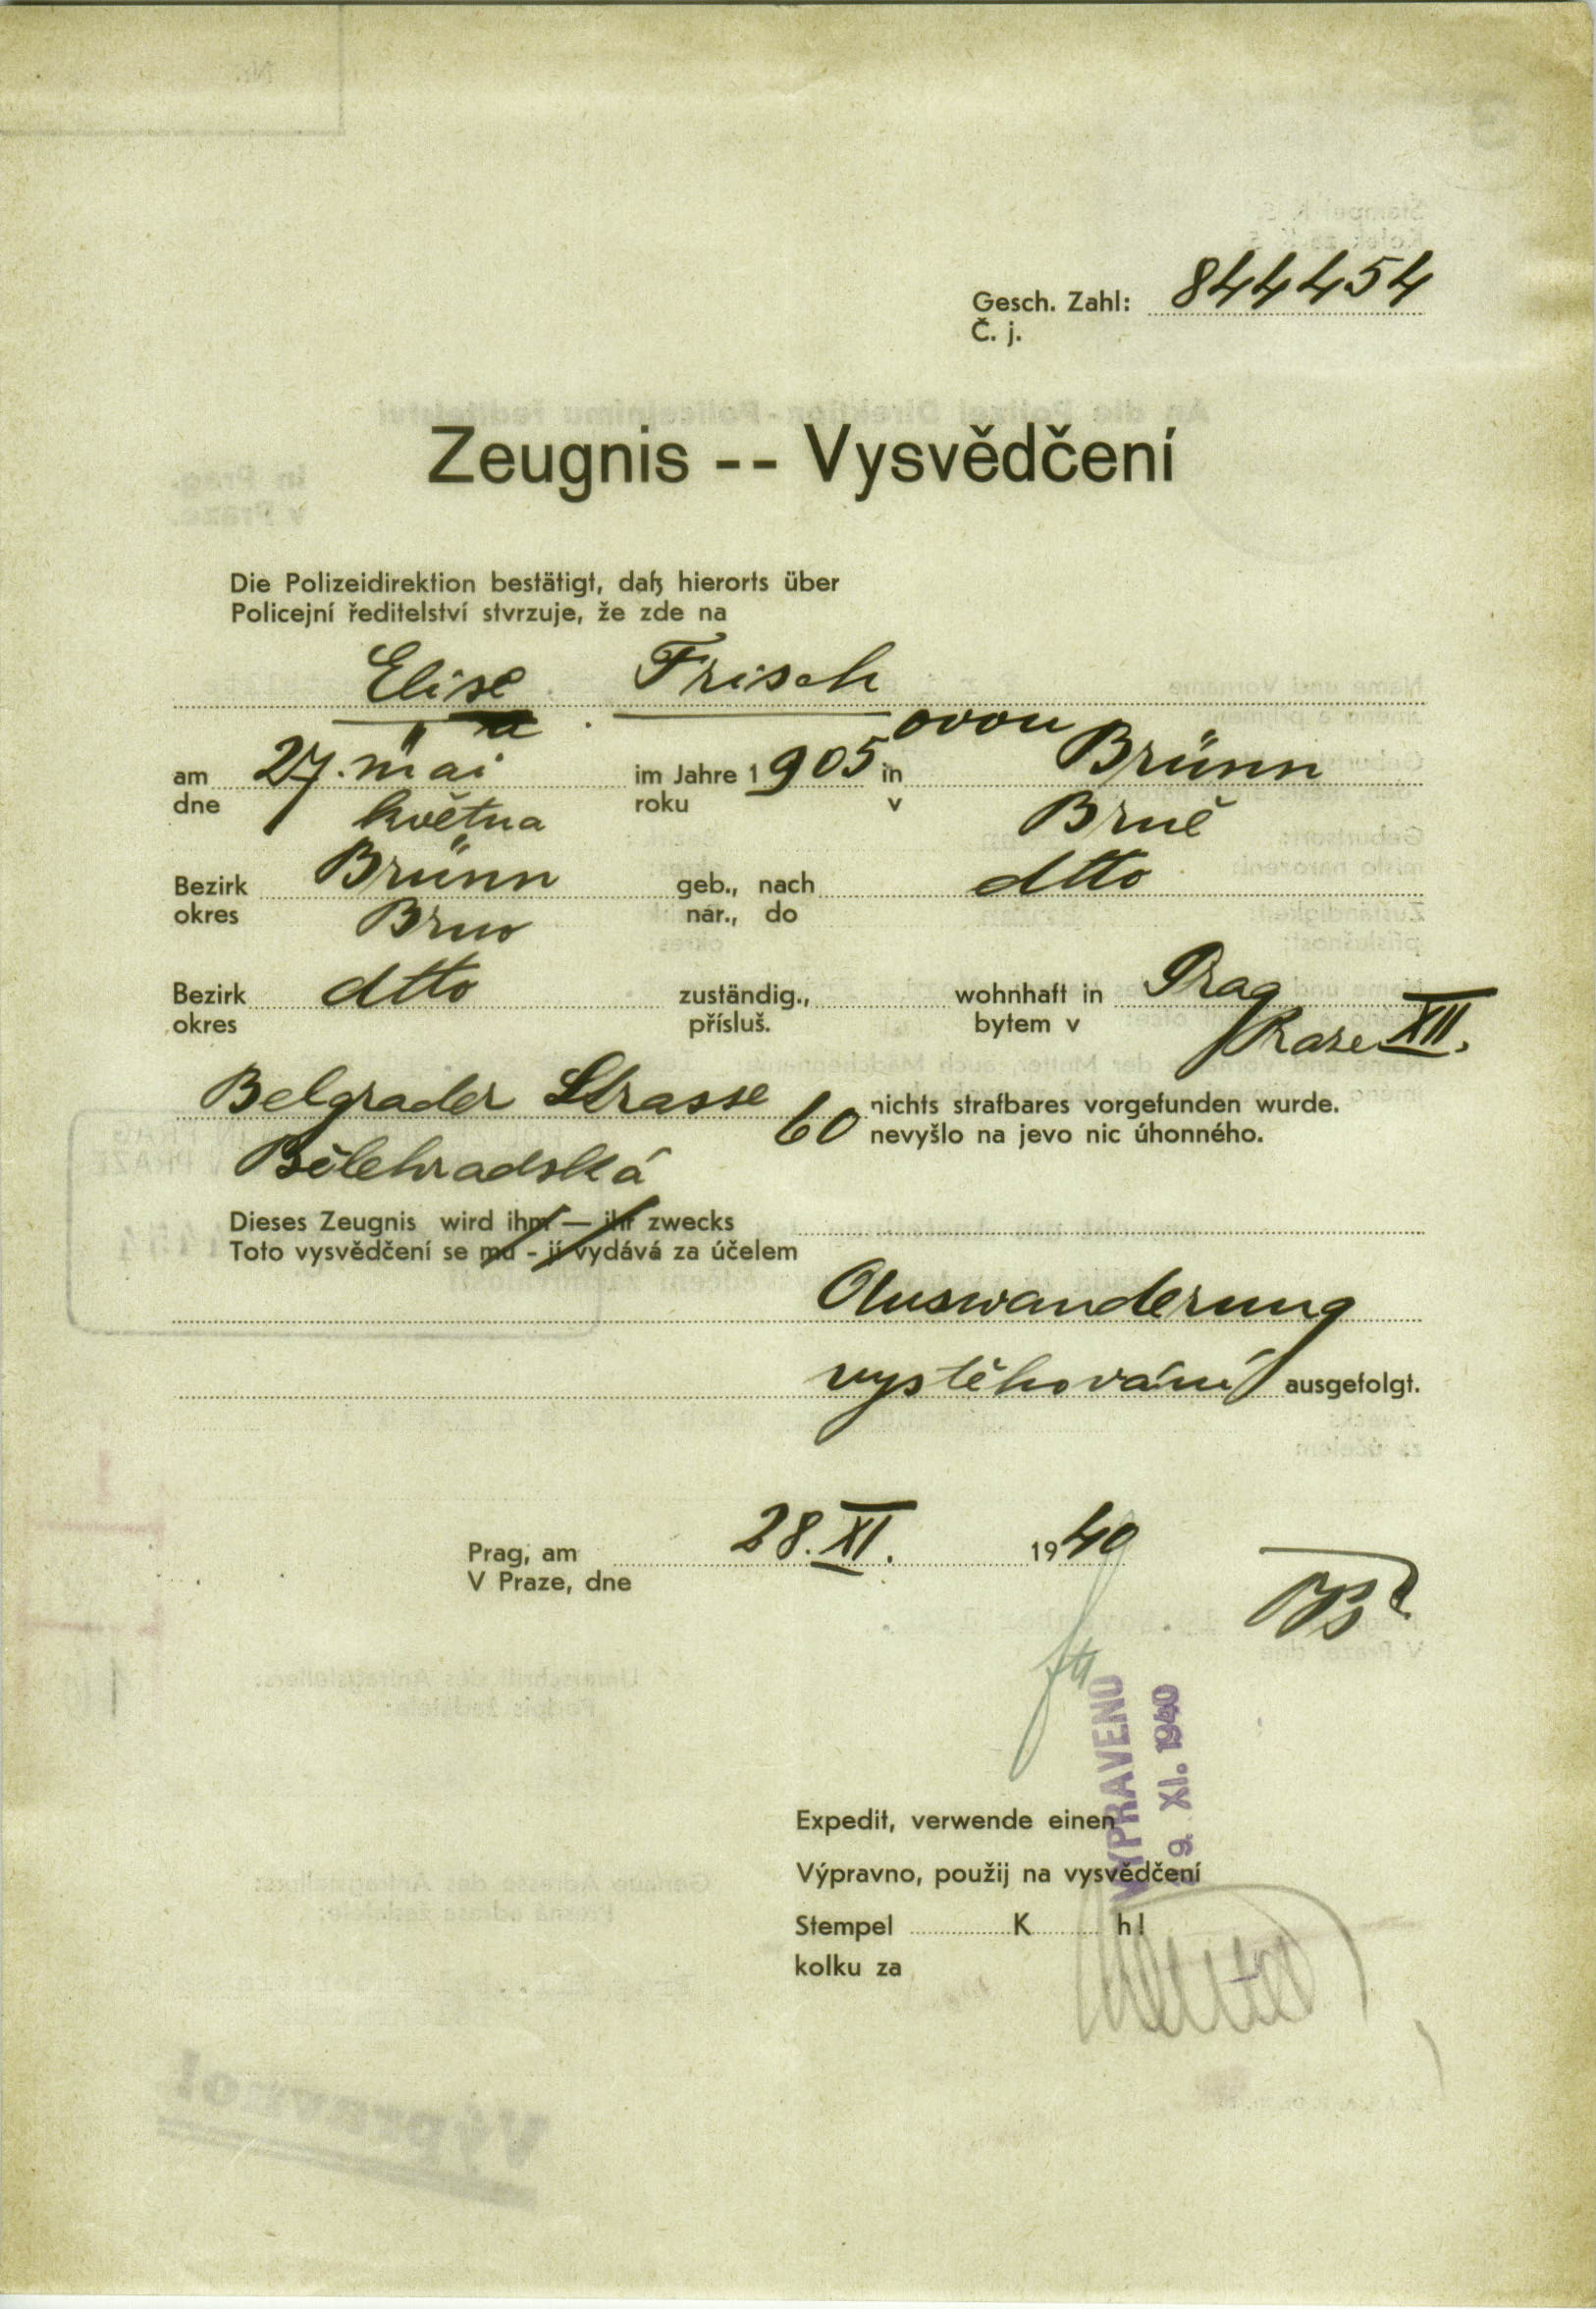 Gesch. Zahl: 844454
Č. j.
Zeugnis -- Vysvědčení
Die Polizeidirektion bestätigt, daß hierorts über
Policejní ředitelství stvrzuje, že zde na
Elise Frisch
a ovou
am 27. Mai im Jahre 1905 in Brünn
dne května roku v Brně
Bezirk Brünn geb., nach dtto
okres Brno nar., do
Bezirk dtto zuständig., wohnhaft in Prag
okres přísluš. bytem v Praze XII.
Belgrader Strasse 60 nichts strafbares vorgefunden wurde.
Bělehradská nevyšlo na jevo nic úhonného.
Dieses Zeugnis wird ihm — ihr zwecks
Toto vysvědčení se mu - jí vydává za účelem
Auswanderung
vystěhování ausgefolgt.
Prag, am 28. XI. 1940
V Praze, dne
VYPRAVENO
29. XI. 1940
Expedit, verwende einen
Výpravno, použij na vysvědčení
Stempel K h!
kolku za